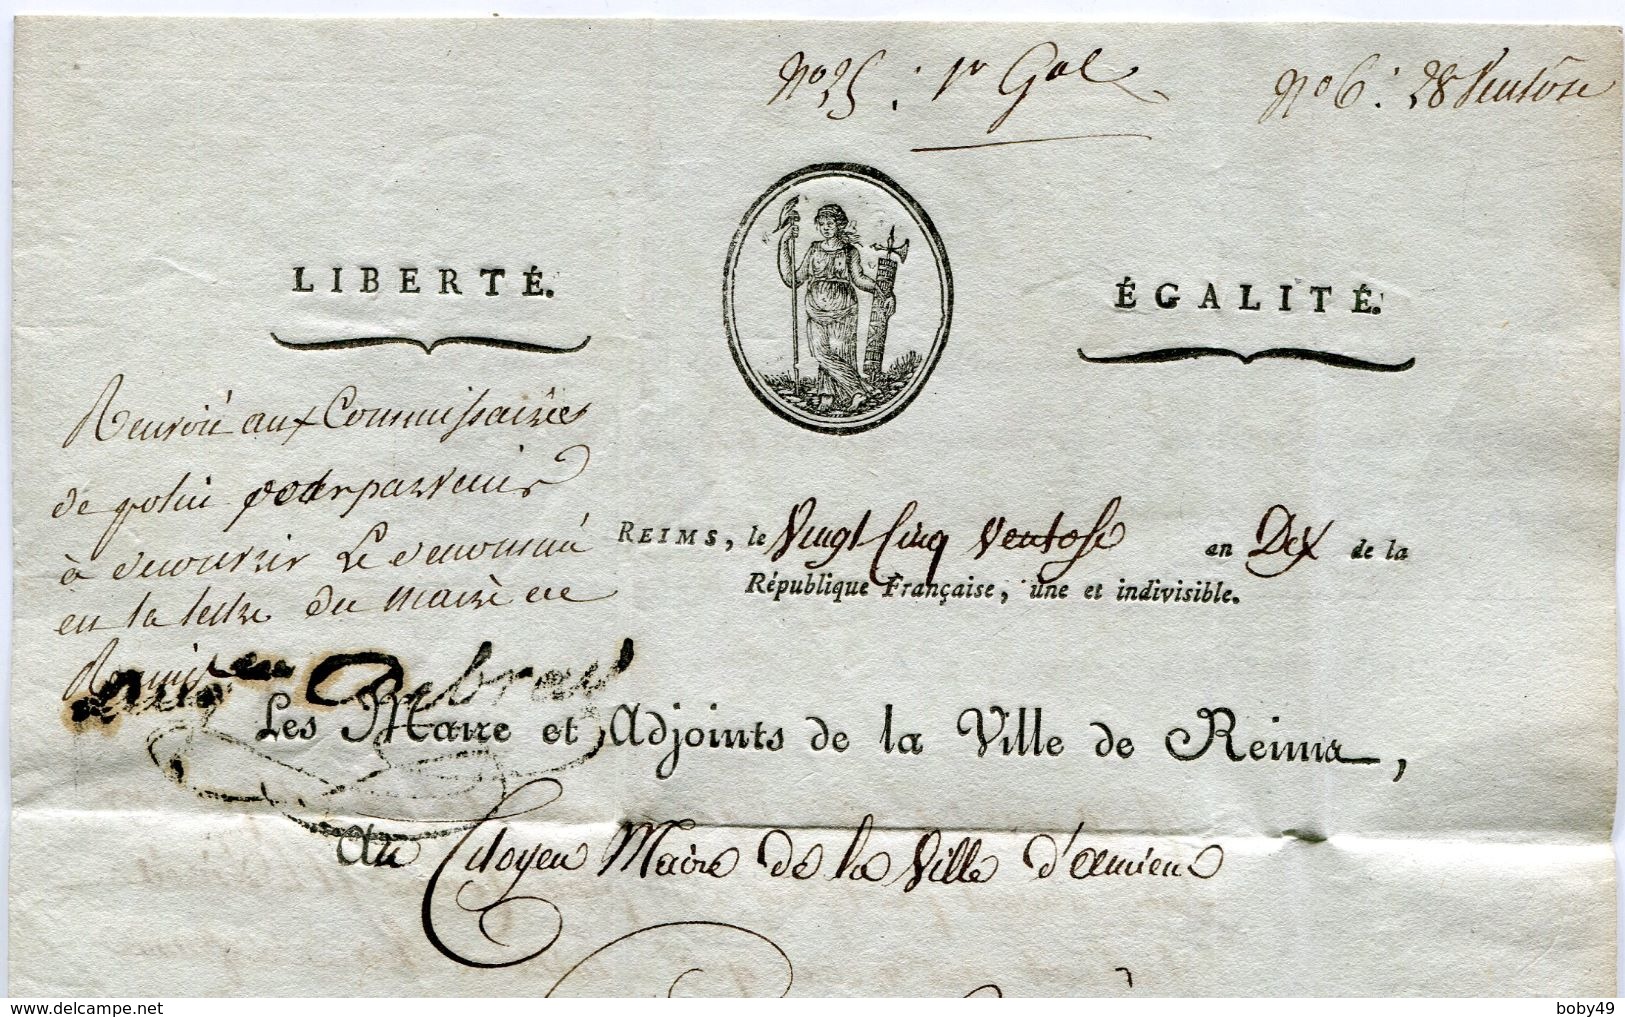 N° 25 : 1er Gal N° 6 : 28 Ventôse
LIBERTÉ. ÉGALITÉ.
Renvoié aux Commissaires
de police pour parvenir
à decouvrir le denommé
en la lettre du maire de
Reims
Debray
REIMS, le Vingt Cinq Ventose an Dix de la
République Française, une et indivisible.
Les Maire et Adjoints de la Ville de Reims,
Au Citoyen Maire de la Ville d'amiens
boby49